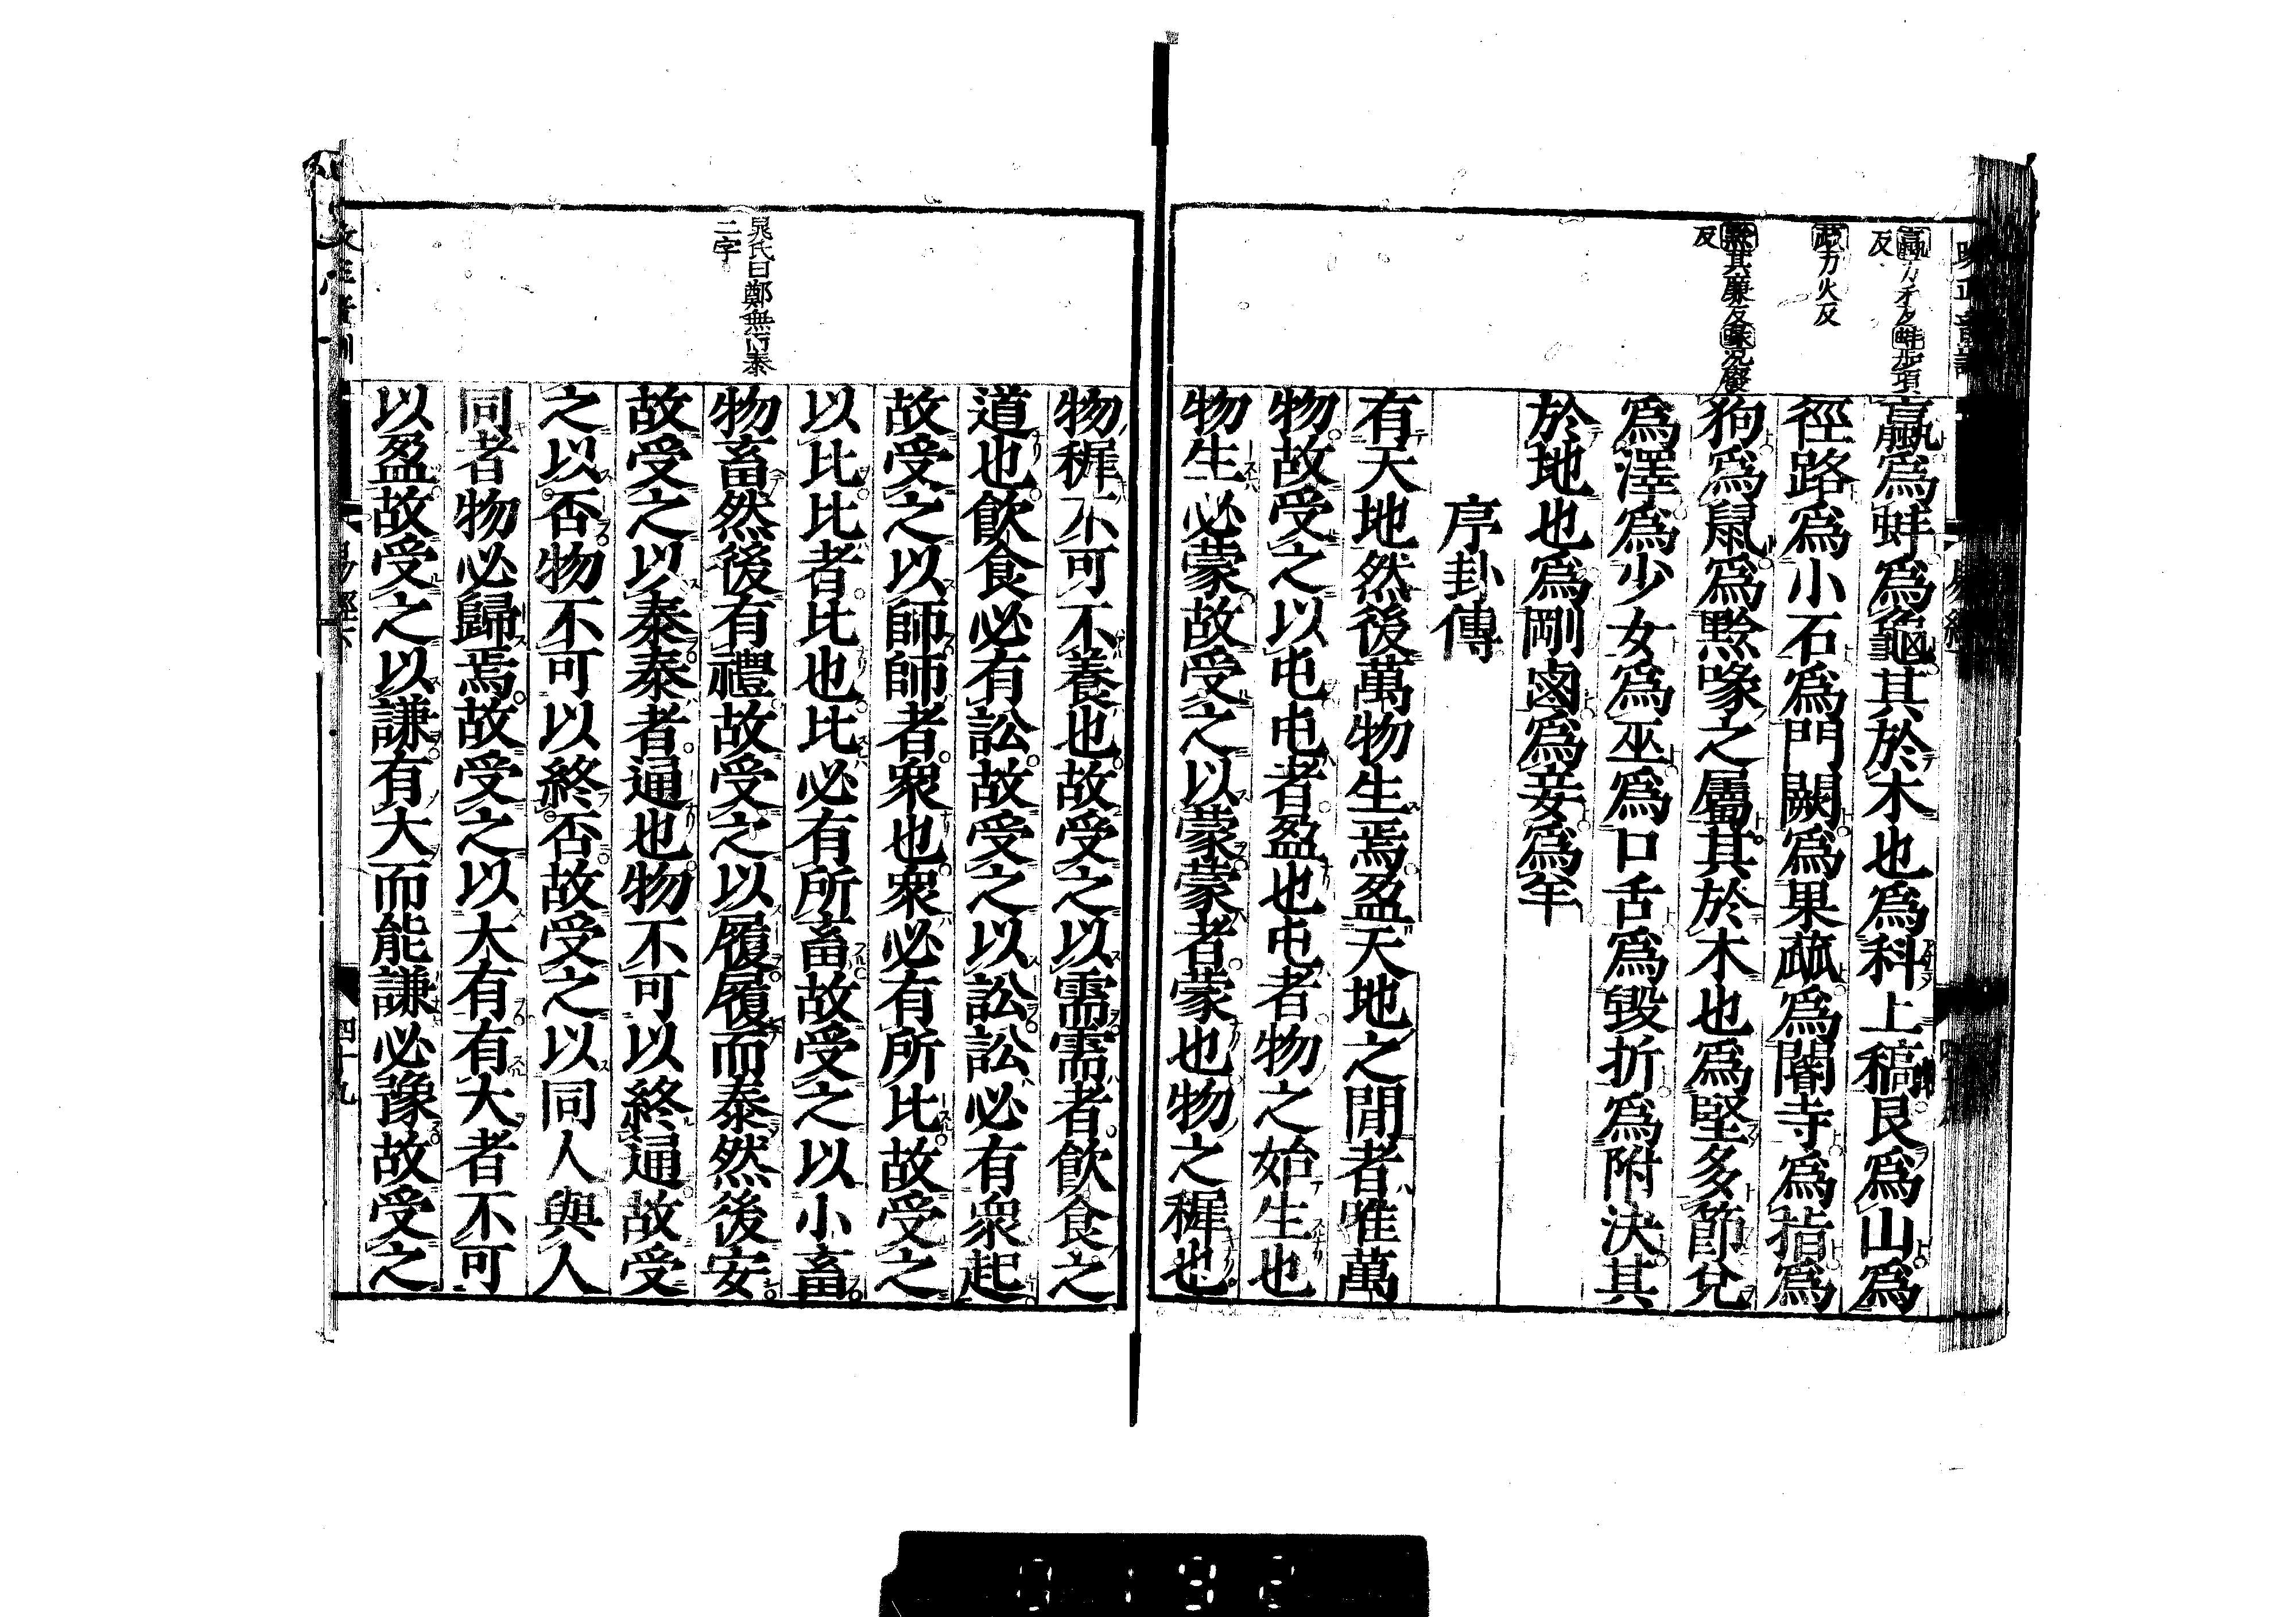 蠃力禾反蚌步項
反
蓏力火反
黔其廉反喙況廢
反
蠃爲蚌爲龜其於木也爲科上稿艮爲山爲
徑路爲小石爲門闕爲果蓏爲閽寺爲指爲
狗爲鼠爲黔喙之屬其於木也爲堅多節兌
爲澤爲少女爲巫爲口舌爲毀折爲附決其
於地也爲剛鹵爲妾爲羊
序卦傳
有天地然後萬物生焉盈天地之閒者唯萬
物故受之以屯屯者盈也屯者物之始生也
物生必蒙故受之以蒙蒙者蒙也物之穉也
晁氏曰鄭無而泰
二字
物穉不可不養也故受之以需需者飲食之
道也飲食必有訟故受之以訟訟必有衆起
故受之以師師者衆也衆必有所比故受之
以比比者比也比必有所畜故受之以小畜
物畜然後有禮故受之以履履而泰然後安
故受之以泰泰者通也物不可以終通故受
之以否物不可以終否故受之以同人與人
同者物必歸焉故受之以大有有大者不可
以盈故受之以謙有大而能謙必豫故受之
易經下
四十九
0192